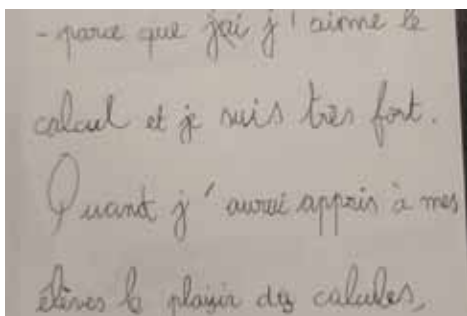 - parce que j'ai j'aime le
calcul et je suis très fort.
Quant j'aurai appris à mes
élèves le plaisir des calcules,